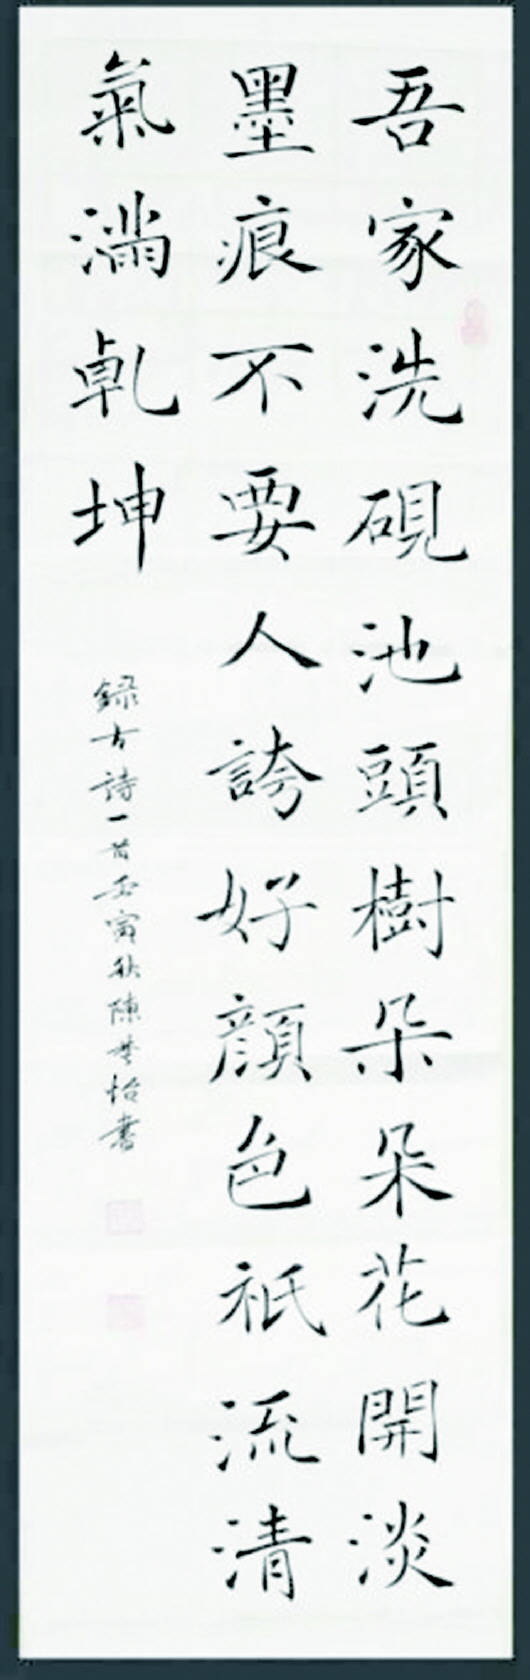 吾家洗硯池頭樹朵朵花開淡
墨痕不要人誇好顔色祇流清
氣滿乹坤
録古詩一首壬寅秋陳怡書